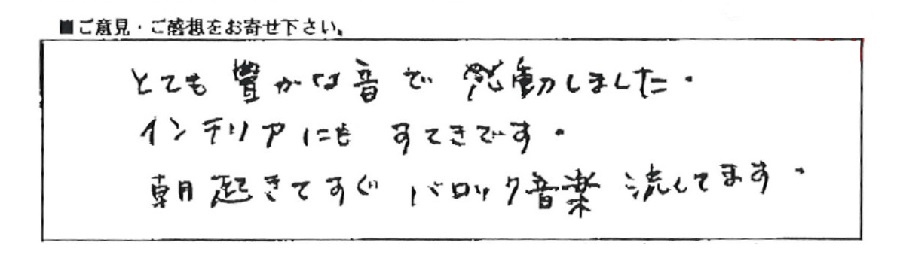 ■ご意見・ご感想をお寄せ下さい。
とても豊かな音で感動しました。
インテリアにもすてきです。
朝起きてすぐバロック音楽流してます。